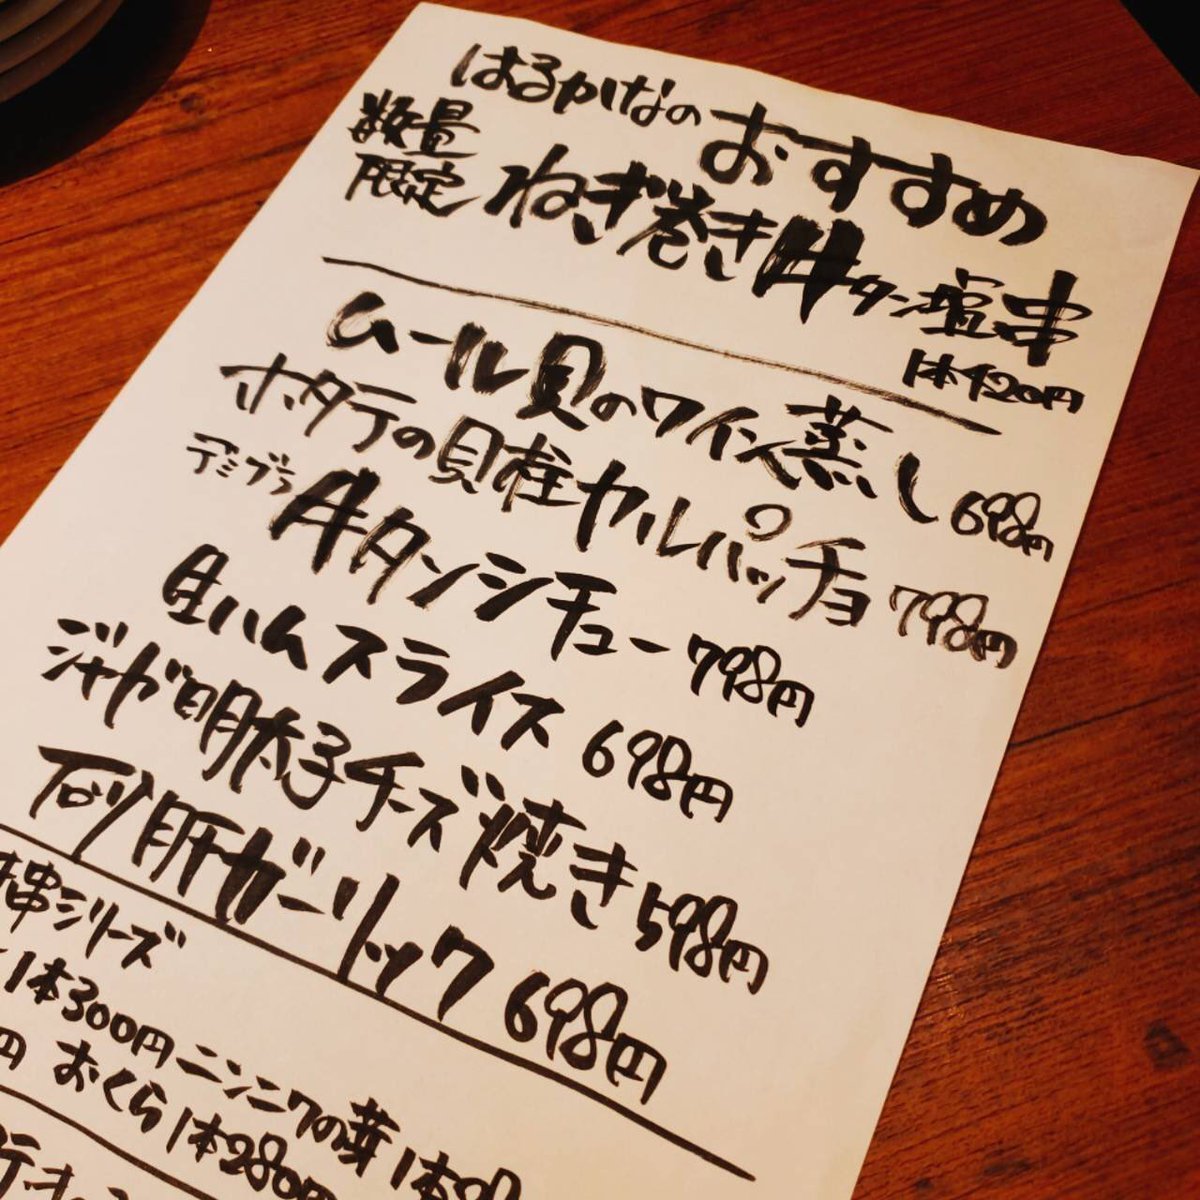 はるかなのおすすめ
数量限定 ねぎ巻き牛タン塩串
1本420円
ムール貝のワイン蒸し 698円
ホタテの貝柱カルパッチョ 798円
デミグラ 牛タンシチュー 798円
生ハムスライス 698円
ジャガ明太子チーズ焼き 598円
砂肝ガーリック 698円
串シリーズ
1本300円 ニンニクの芽 1本
円 おくら 1本280円